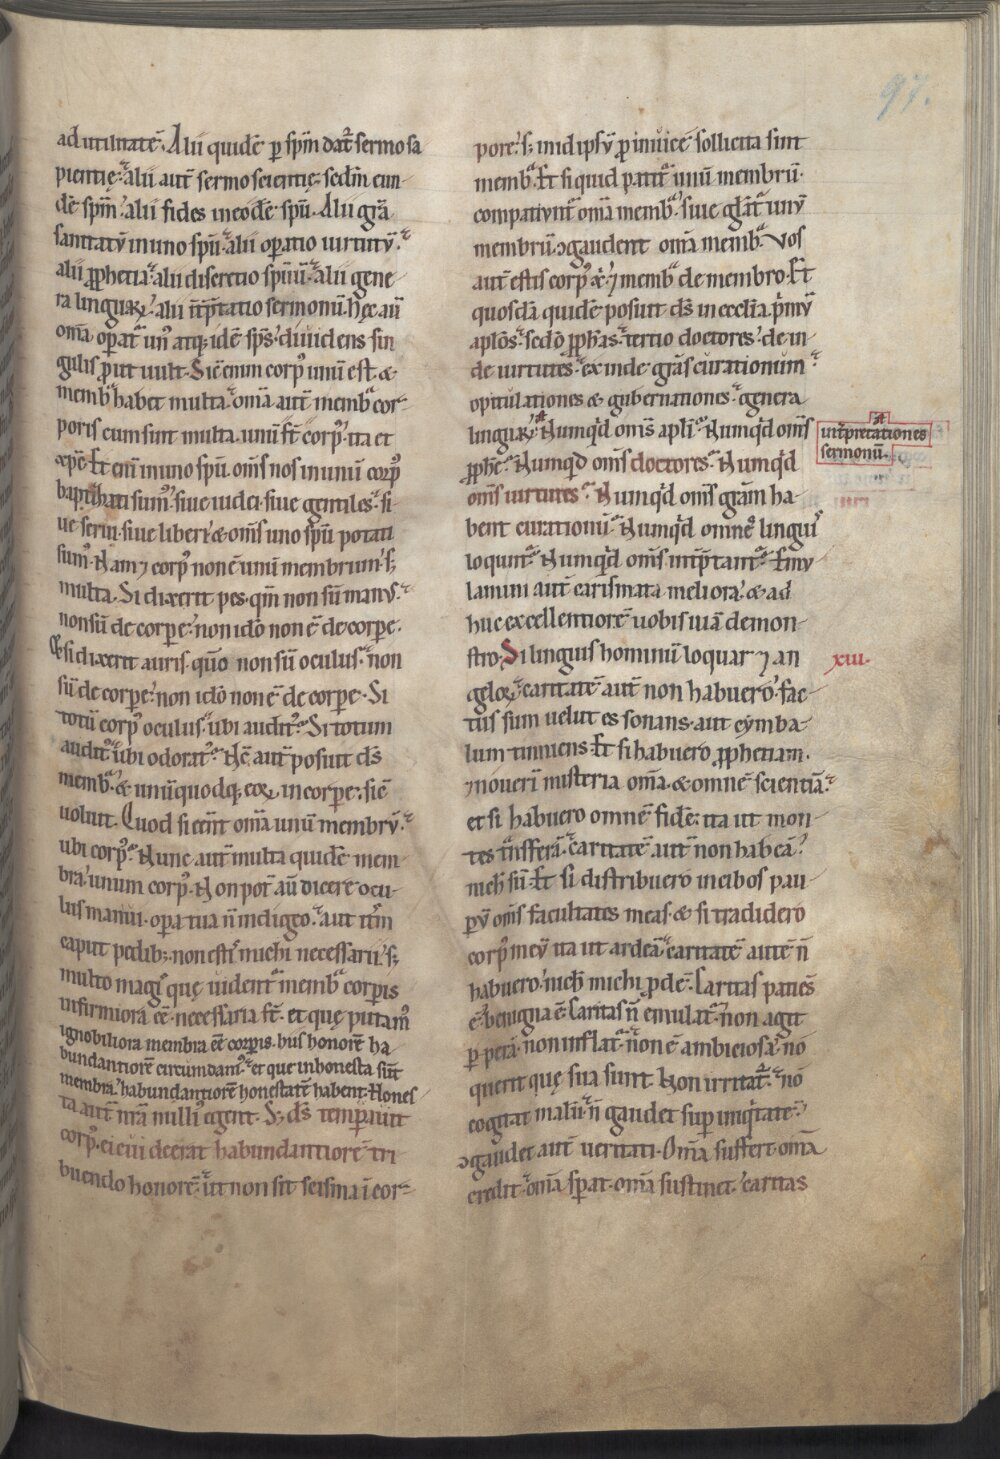 97.
ad utilitatē. Alii quidē p̱ sp̄m dat᷑ sermo sa
pientię. alii aut̄ sermo scientię. scd̄m eun
dē sp̄m. alii fides in eodē sp̄u. Alii gr̄a
sanitatū in uno sp̄u. alii op̱atio uirtutū.
alii ꝓphetia. alii discretio sp̄uū. alii gene
ra linguaꝝ. alii int̄p̄tatio sermonū. hęc aū
om̄a op̱at᷑ un᷒ atq; idē sp̄s. diuidens sin
gilis ꝓut uult. Sic̄ enim corp᷒ unū est &
memb̄ habet multa. om̄a aut̄ memb̄ cor
poris cum sint multa. unū st̄ corp᷒. ita et
xp̄c. Et eni᷑ in uno sp̄u. om̄s nos in unū corp᷒
baptizati sum᷒. siue iudei. siue gentiles. si
ue serui. siue liberi. & om̄s uno sp̄u potati
sum᷒. Nam ⁊ corp᷒ non ē unū membrum. s;
multa. Si dixerit pes. qm̄ non sū manus.
non sū de corpe. non idō non ē de corpe.
& si dixerit auris. qūo non sū oculus. non
sū de corpe. non idō non ē de corpe. Si
totū corp᷒ oculus. ubi audit᷒. Si totum
audit᷒. ubi odorat᷒. Nc̄ aut̄ posuit ds̄
memb̄. & unūquodq; eoꝝ in corpe. sic̄
uoluit. Quod si eēnt om̄a unū membrū.
ubi corp᷒. Nunc aut̄ multa quidē mem
bra. unum corp᷒. Non pot̄ aū dicere ocu
lus manui. op̱a tua n̄ indigeo. aut itēm
caput pedib;. non estis michi necessarii. s;
multo magis quę uident᷑ memb̄ corp̱is
infirmiora eē. necessaria st̄. et quę putam᷒
ignobiliora membra eē corp̱is. his honorē ha
bundantiorē circumdam᷒. et que inhonesta sūt
membra. habundantiorē honestatē habent. Hones
ta aut̄ nr̄a nulli᷒ egent. S; ds̄ temp̱auit
corp᷒. ei cui deerat habundantiorē tri
buendo honorē. ut non sit scisma ī cor
pore. s; in id ipsū ꝓ inuicē sollicita sint
memb̄. Et si quid patit᷑ unū membrū.
compatiunt᷑ om̄a memb̄. siue gl̄at᷑ unū
membrū. ꝯgaudent om̄a memb̄. Vos
aut̄ estis corp᷒ xp̄i ⁊ memb̄ de membro. Et
quosdā quidē posuit ds̄ in eccl̄ia. p̄mū
ap̄los. sc̄do ꝓphas. tertio doctores. de in
de uirtutes. ex inde gr̄as curationum.
opitulationes & gubernationes. genera
linguaꝝ. Numqd̄ om̄s apl̄i. Numqd̄ om̄s
ꝓphē. Numqd̄ om̄s doctores. Numqd̄
om̄s uirtutes. Numqd̄ om̄s gr̄am ha
bent curationū. Numqd̄ omnes lingu᷒
loqunt᷑. Numqd̄ om̄s int̄p̄tant᷑. Emu
lamini aut̄ carismata meliora. & ad
huc excellentiorē uobis uiā demon
stro. Si linguis hominū loquar ⁊ an
geloꝝ. caritatē aut̄ non habuero. fac
tus sum uelut es sonans. aut cymba
lum tinniens. Et si habuero ꝓphetiam.
⁊ nouerī misteria om̄a. & omnē scientiā.
et si habuero omnē fidē. ita ut mon
tes t̄nsferā. caritatē aut̄ non habeā.
nich̄ sū. Et si distribuero in cibos pau
p̱ū om̄s facultates meas. & si tradidero
corp᷒ meū ita ut ardeā. caritatē autē n̄
habuero. nich̄ michi ꝓdē. Caritas patiēs
ē. benigna ē. Caritas n̄ emulat᷑. non agit
p̱ perā. non inflat᷑. non ē ambiciosa. nō
querit quę sua sunt. Non irritat᷑. nō
cogitat malū. n̄ gaudet sup̱ iniqitatē.
ꝯgaudet aut̄ ueritati. Om̄a suffert. om̄a
credit. om̄a sp̱at. om̄a sustinet. caritas
int̄pretationes
sermonū.
xiii.